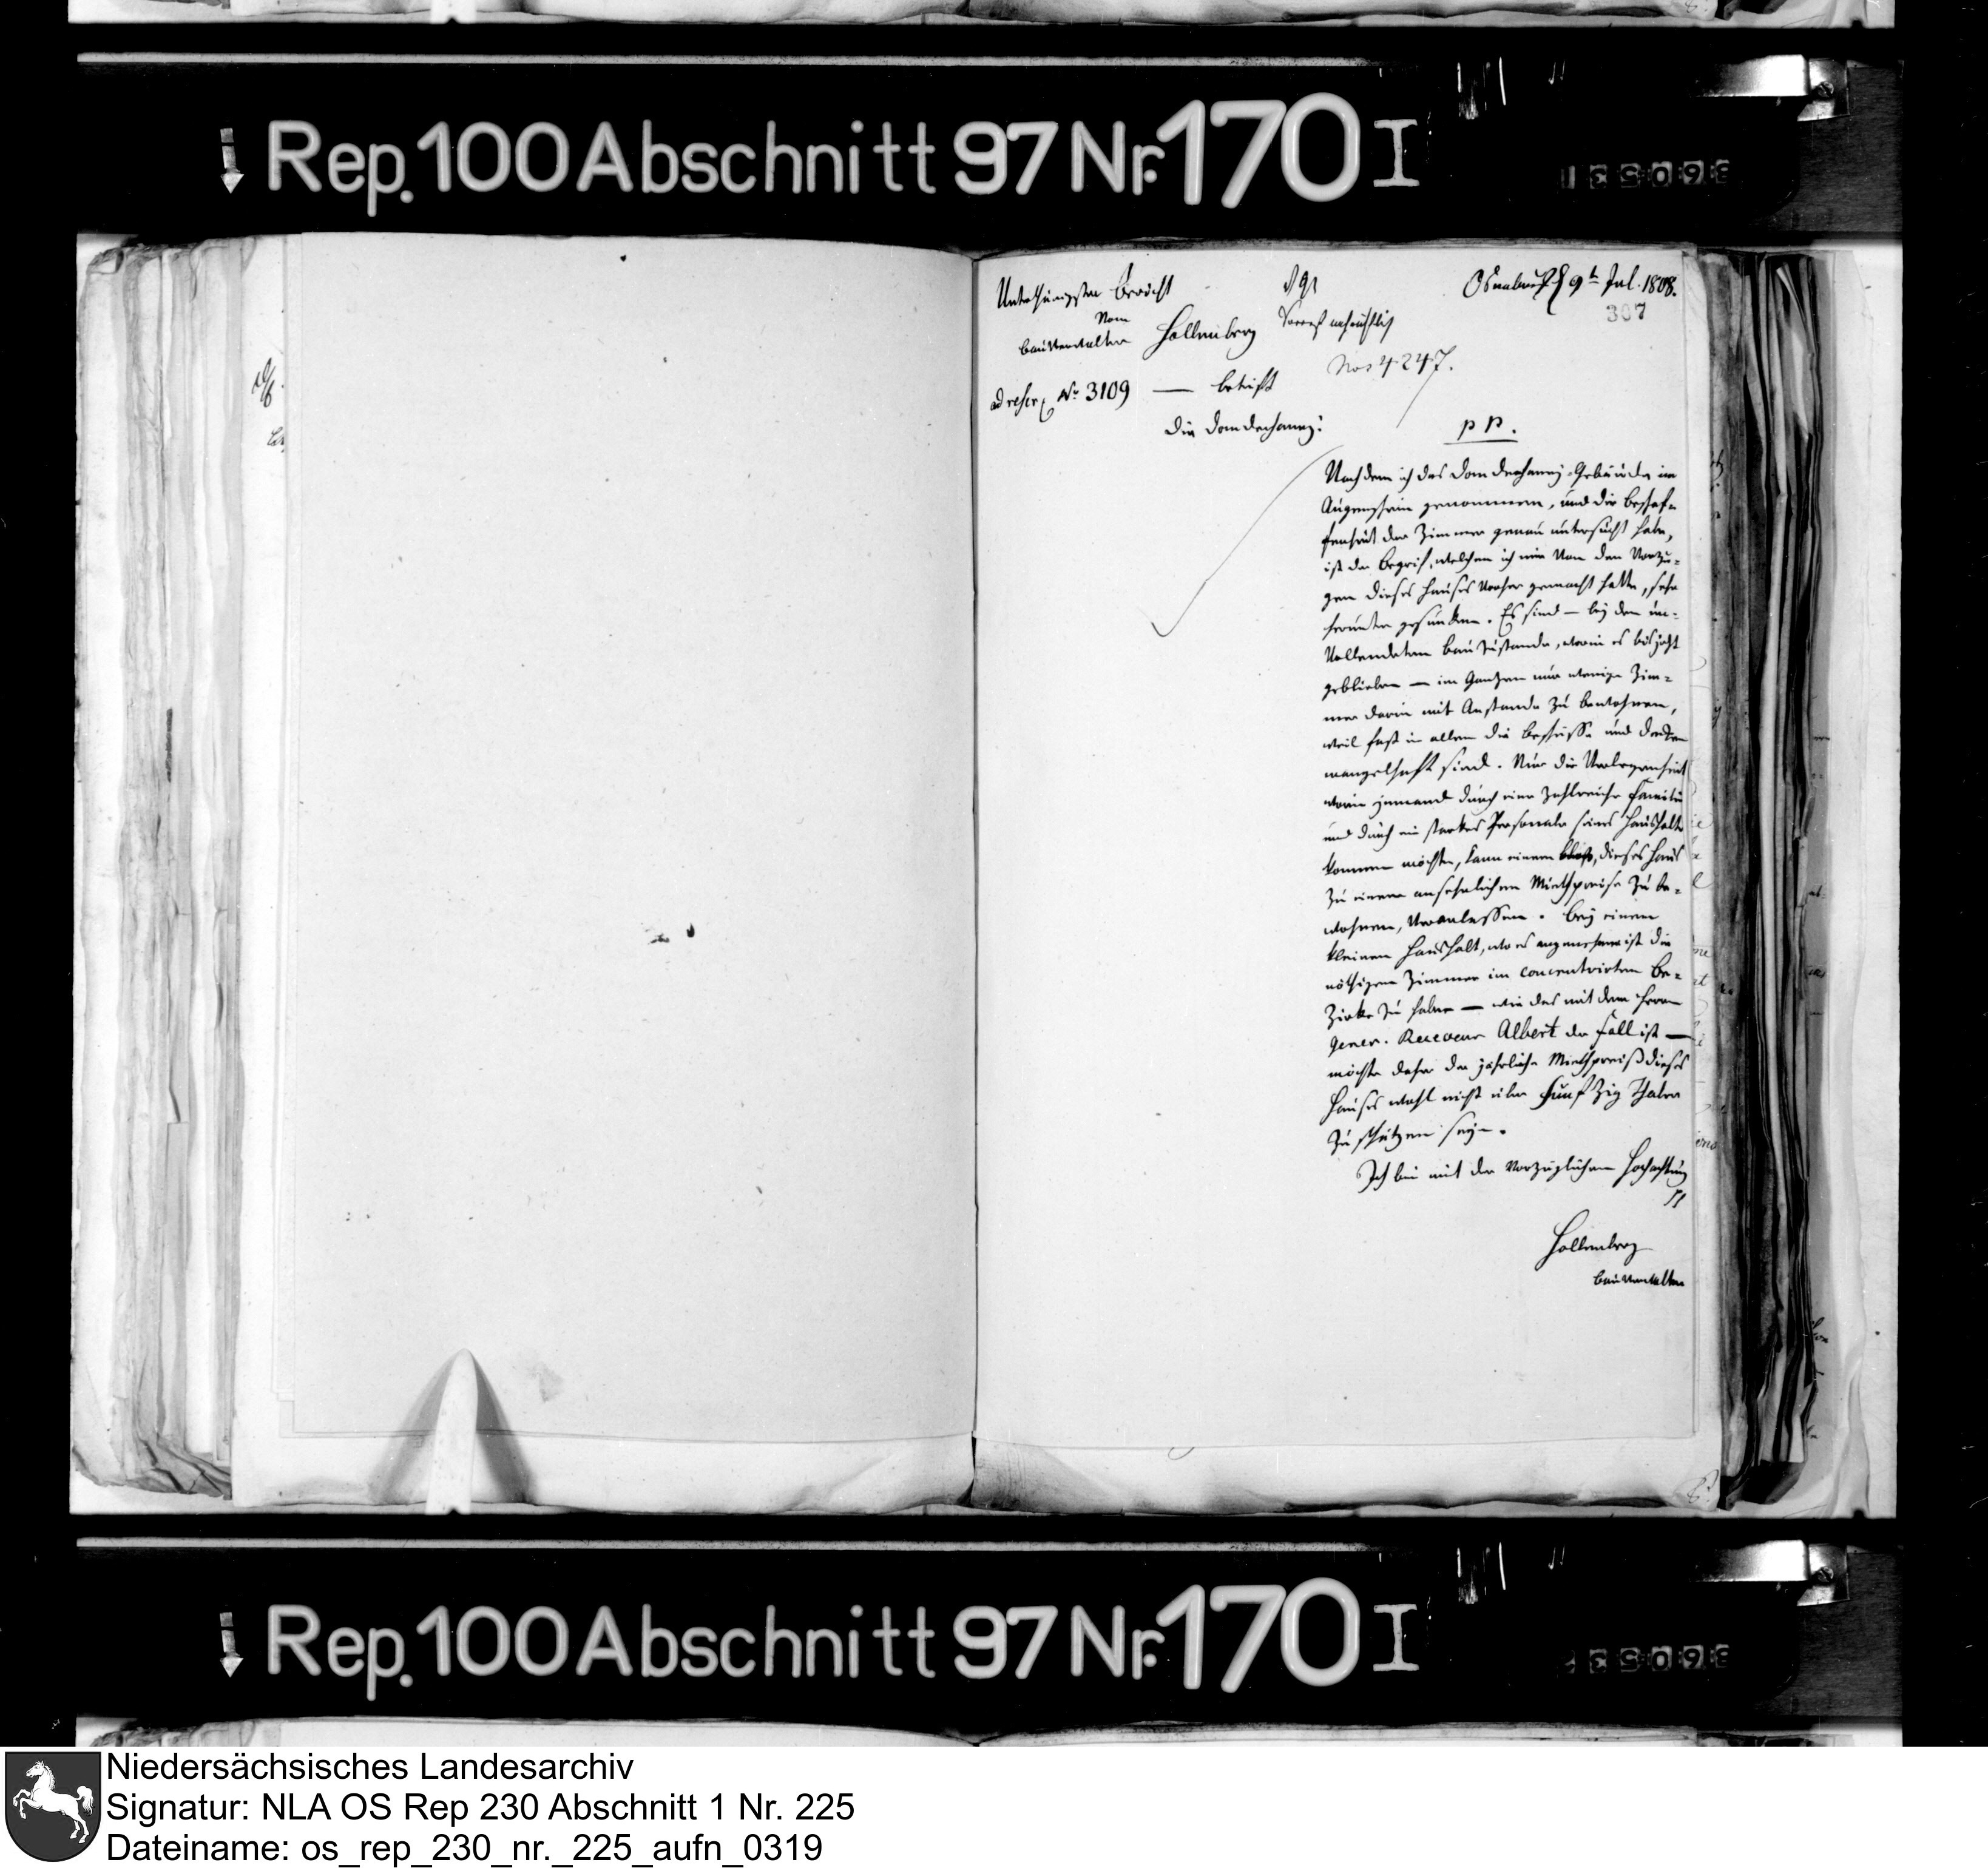 Rep. 100 Abschnitt 97 Nr. 170 I
Unterthänigster Bericht
Vom
Bauverwalter Hollenberg
ad rescr. No. 3109 — betrift
die Domdechaney:
Osnabrück 9t Jul. 1808.
307
Nro 4247.
p p.
Nachdem ich das Domdechaney-Gebäude in
Augenschein genommen, und die Beschaf-
fenheit der Zimmer genau untersucht habe,
ist der Begrif, welchen ich mir von den Vorzü-
gen dieses Hauses vorher gemacht hatte, sehr
herunter gesunken. Es sind — bey dem un-
vollendeten Bauzustande, worin es bis jetzt
geblieben — im Ganzen nur wenige Zim-
mer darin mit Anstande zu bewohnen,
weil fast in allen die und Decken
mangelhaft sind. Nur die Verlegenheit
worin jemand durch eine zahlreiche Familie
und durch ein starkes Personale seines Haushalts
kommen möchte, kann einen dieses Haus
zu einem ansehnlichen Miethpreise zu be-
wohnen, veranlassen. Bey einem
kleinen Haushalt, wo es angenehm ist die
nöthigen Zimmer im concentrirten Be-
zirke zu haben — wie das mit dem Herrn
Gener. Receveur Albert der Fall ist —
möchte daher der jährliche Miethpreiß dieses
Hauses wohl nicht über Funfzig Thaler
zu schätzen seyn.
Ich bin mit der vorzüglichen Hochachtung
Hollenberg
Bauverwalter
Rep. 100 Abschnitt 97 Nr. 170 I
Niedersächsisches Landesarchiv
Signatur: NLA OS Rep 230 Abschnitt 1 Nr. 225
Dateiname: os_rep_230_nr._225_aufn_0319